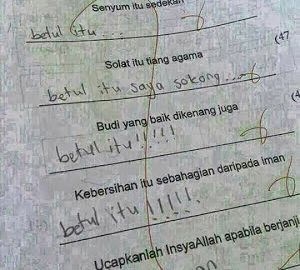 Senyum itu sedekah
betul itu ...
(47
Solat itu tiang agama
betul itu saya sokong ...
Budi yang baik dikenang juga
betul itu!!!!!
Kebersihan itu sebahagian daripada iman
betul itu !!!!!.
Ucapkanlah InsyaAllah apabila berjanji